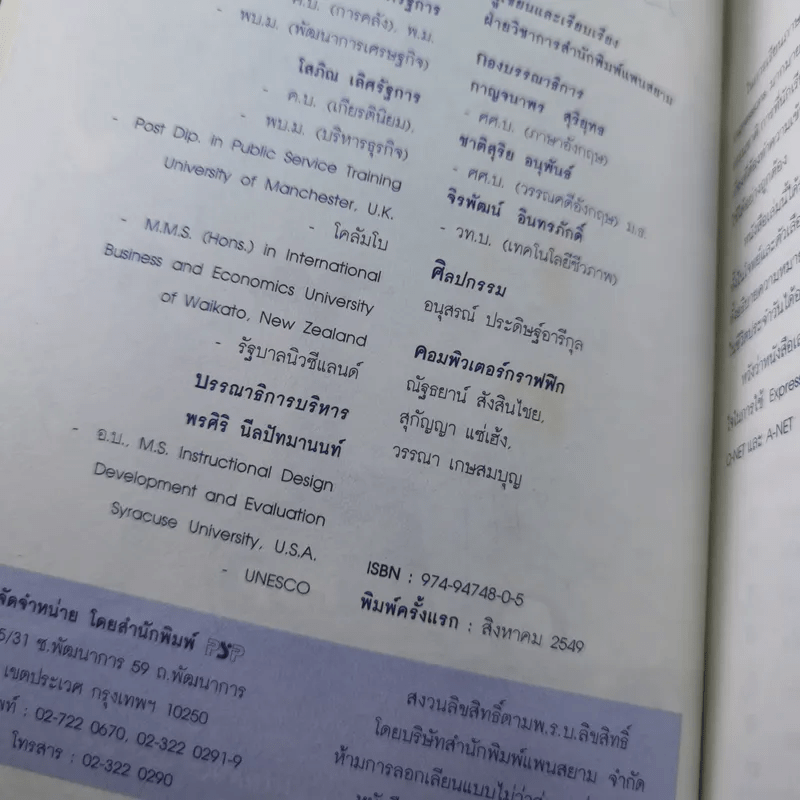 ค.บ. (การคลัง), พ.ม.
- พบ.ม. (พัฒนาการเศรษฐกิจ)
โสภิณ เลิศรัฐการ
- ค.บ. (เกียรตินิยม),
- พบ.ม. (บริหารธุรกิจ)
- Post Dip. in Public Service Training
University of Manchester, U.K.
- โคลัมโบ
- M.M.S. (Hons.) in International
Business and Economics University
of Waikato, New Zealand
- รัฐบาลนิวซีแลนด์
บรรณาธิการบริหาร
พรศิริ นีลปัทมานนท์
- อ.บ., M.S. Instructional Design
Development and Evaluation
Syracuse University, U.S.A.
- UNESCO
ผู้เขียนและเรียบเรียง
ฝ่ายวิชาการสำนักพิมพ์แพนสยาม
กองบรรณาธิการ
กาญจนาพร สุริยุทธ
- ศศ.บ. (ภาษาอังกฤษ)
ชาติสุริย อนุพันธ์
- ศศ.บ. (วรรณคดีอังกฤษ) ม.ช.
จิรพัฒน์ อินทรภักดิ์
- วท.บ. (เทคโนโลยีชีวภาพ)
ศิลปกรรม
อนุสรณ์ ประดิษฐ์อารีกุล
คอมพิวเตอร์กราฟฟิก
ณัฐธยาน์ สังสินไชย,
สุกัญญา แซ่เฮ้ง,
วรรณา เกษสมบุญ
ISBN : 974-94748-0-5
พิมพ์ครั้งแรก : สิงหาคม 2549
จัดจำหน่าย โดยสำนักพิมพ์ PSP
5/31 ซ.พัฒนาการ 59 ถ.พัฒนาการ
เขตประเวศ กรุงเทพฯ 10250
: 02-722 0670, 02-322 0291-9
โทรสาร : 02-322 0290
สงวนลิขสิทธิ์ตามพ.ร.บ.ลิขสิทธิ์
โดยบริษัทสำนักพิมพ์แพนสยาม จำกัด
ห้ามการลอกเลียนแบบไม่ว่า
หนังสือเล่มนี้ได้
ในชีวิตประจำวันได้
หวังว่าหนังสือ
ใจในการใช้ Express
O-NET และ A-NET